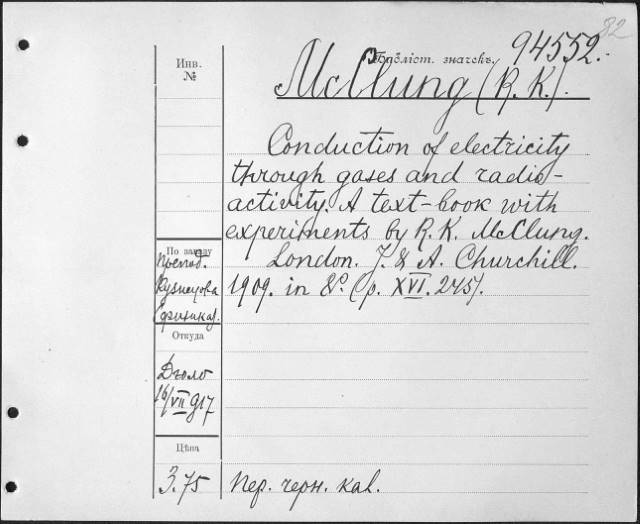 82
Инв.
№
Бібліот. значекъ.
94552.
McClung (R. K.).
Conduction of electricity
through gases and radio-
activity. A text-book with
experiments by R. K. McClung.
London. J. & A. Churchill.
1909. in 8º. (p. XVI. 245).
По заказу
Кузнецова
Откуда
16/VII 917
Цѣна
3.75
Пер. черн. кал.